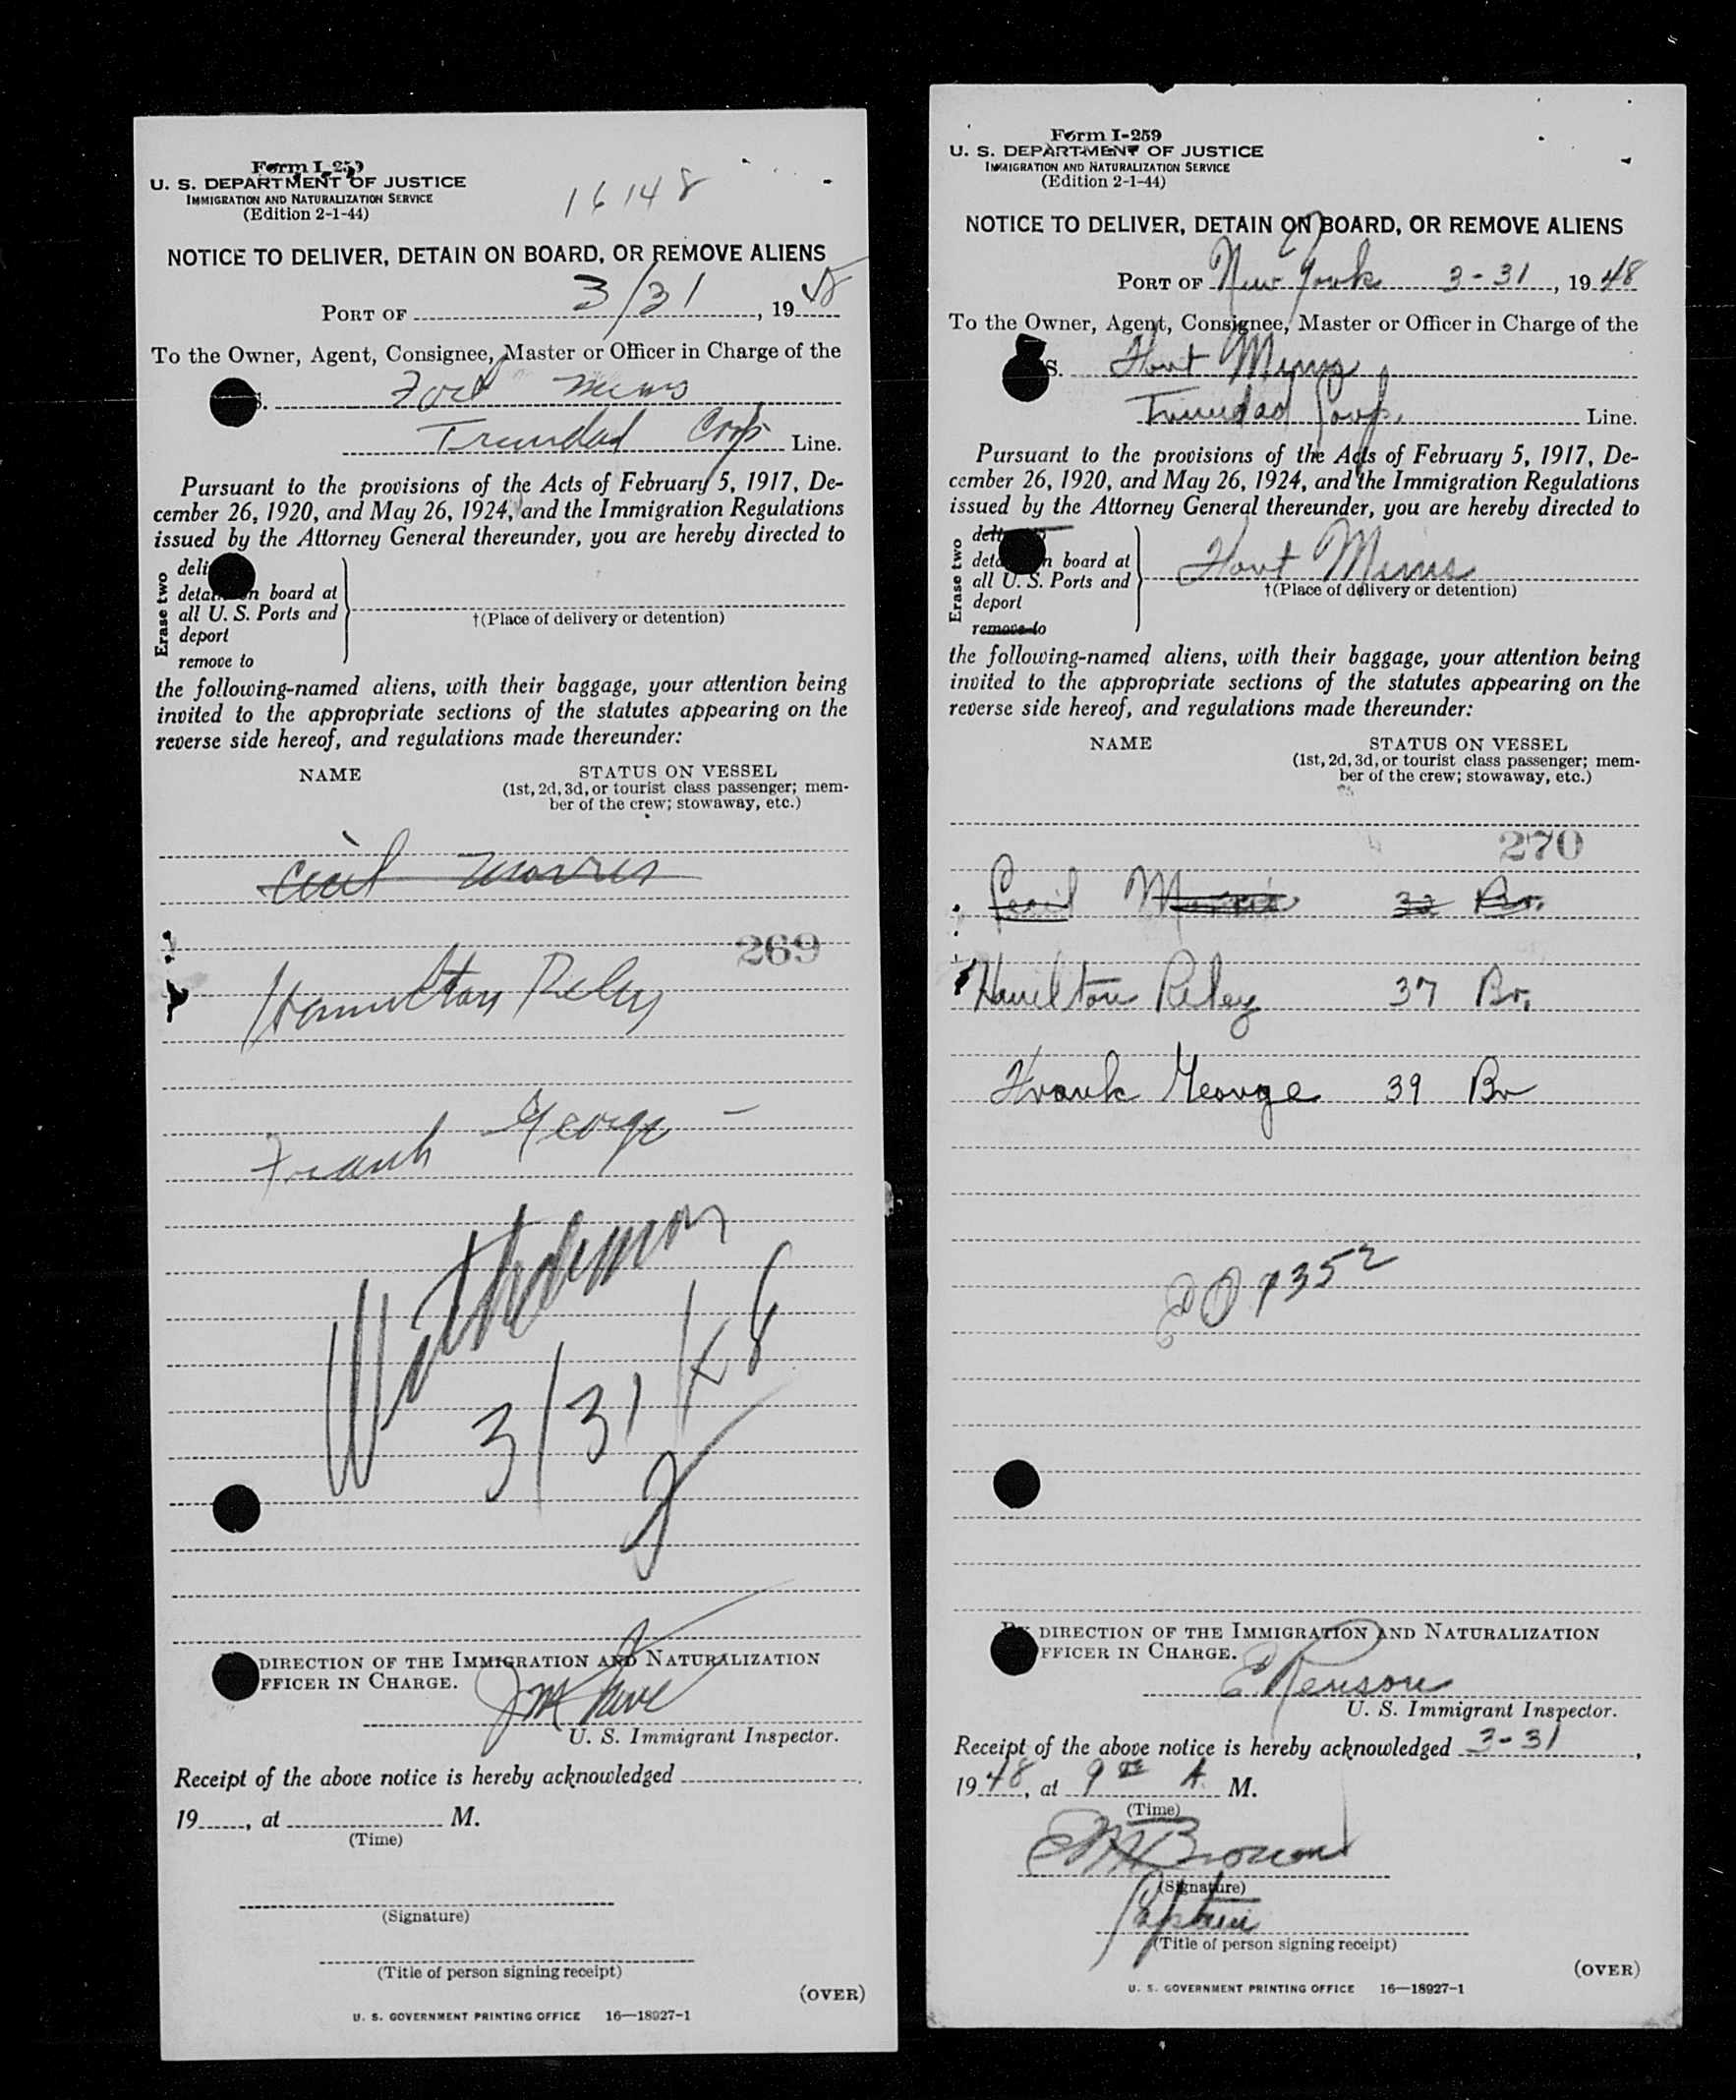 Form I-259
U. S. DEPARTMENT OF JUSTICE
IMMIGRATION AND NATURALIZATION SERVICE
(Edition 2-1-44)
16148
NOTICE TO DELIVER, DETAIN ON BOARD, OR REMOVE ALIENS
PORT OF 3/31, 1948
To the Owner, Agent, Consignee, Master or Officer in Charge of the
S. Fort Mims
Trinidad Corp Line.
Pursuant to the provisions of the Acts of February 5, 1917, De-
cember 26, 1920, and May 26, 1924, and the Immigration Regulations
issued by the Attorney General thereunder, you are hereby directed to
Erase two
deli
detain on board at
all U. S. Ports and
deport
remove to
†(Place of delivery or detention)
the following-named aliens, with their baggage, your attention being
invited to the appropriate sections of the statutes appearing on the
reverse side hereof, and regulations made thereunder:
NAME STATUS ON VESSEL
(1st, 2d, 3d, or tourist class passenger; mem-
ber of the crew; stowaway, etc.)
Cecil Morris
269
Hamilton Riley
Frank George -
Withdrawn
3/31/48
DIRECTION OF THE IMMIGRATION AND NATURALIZATION
FFICER IN CHARGE.
U. S. Immigrant Inspector.
Receipt of the above notice is hereby acknowledged
19, at M.
(Time)
(Signature)
(Title of person signing receipt)
(OVER)
U. S. GOVERNMENT PRINTING OFFICE 16—18927-1
Form I-259
U. S. DEPARTMENT OF JUSTICE
IMMIGRATION AND NATURALIZATION SERVICE
(Edition 2-1-44)
NOTICE TO DELIVER, DETAIN ON BOARD, OR REMOVE ALIENS
PORT OF New York 3-31, 1948
To the Owner, Agent, Consignee, Master or Officer in Charge of the
S. Fort Mims
Trinidad Corp. Line.
Pursuant to the provisions of the Acts of February 5, 1917, De-
cember 26, 1920, and May 26, 1924, and the Immigration Regulations
issued by the Attorney General thereunder, you are hereby directed to
Erase two
deli
detain on board at
all U. S. Ports and
deport
remove to
Fort Mims
†(Place of delivery or detention)
the following-named aliens, with their baggage, your attention being
invited to the appropriate sections of the statutes appearing on the
reverse side hereof, and regulations made thereunder:
NAME STATUS ON VESSEL
(1st, 2d, 3d, or tourist class passenger; mem-
ber of the crew; stowaway, etc.)
270
Cecil Morris 32 Br.
Hamilton Riley 37 Br.
Frank George 39 Br
BY DIRECTION OF THE IMMIGRATION AND NATURALIZATION
FFICER IN CHARGE.
U. S. Immigrant Inspector.
Receipt of the above notice is hereby acknowledged 3-31,
1948, at 9 A. M.
(Time)
Brown
(Signature)
Captain
(Title of person signing receipt)
(OVER)
U. S. GOVERNMENT PRINTING OFFICE 16—18927-1